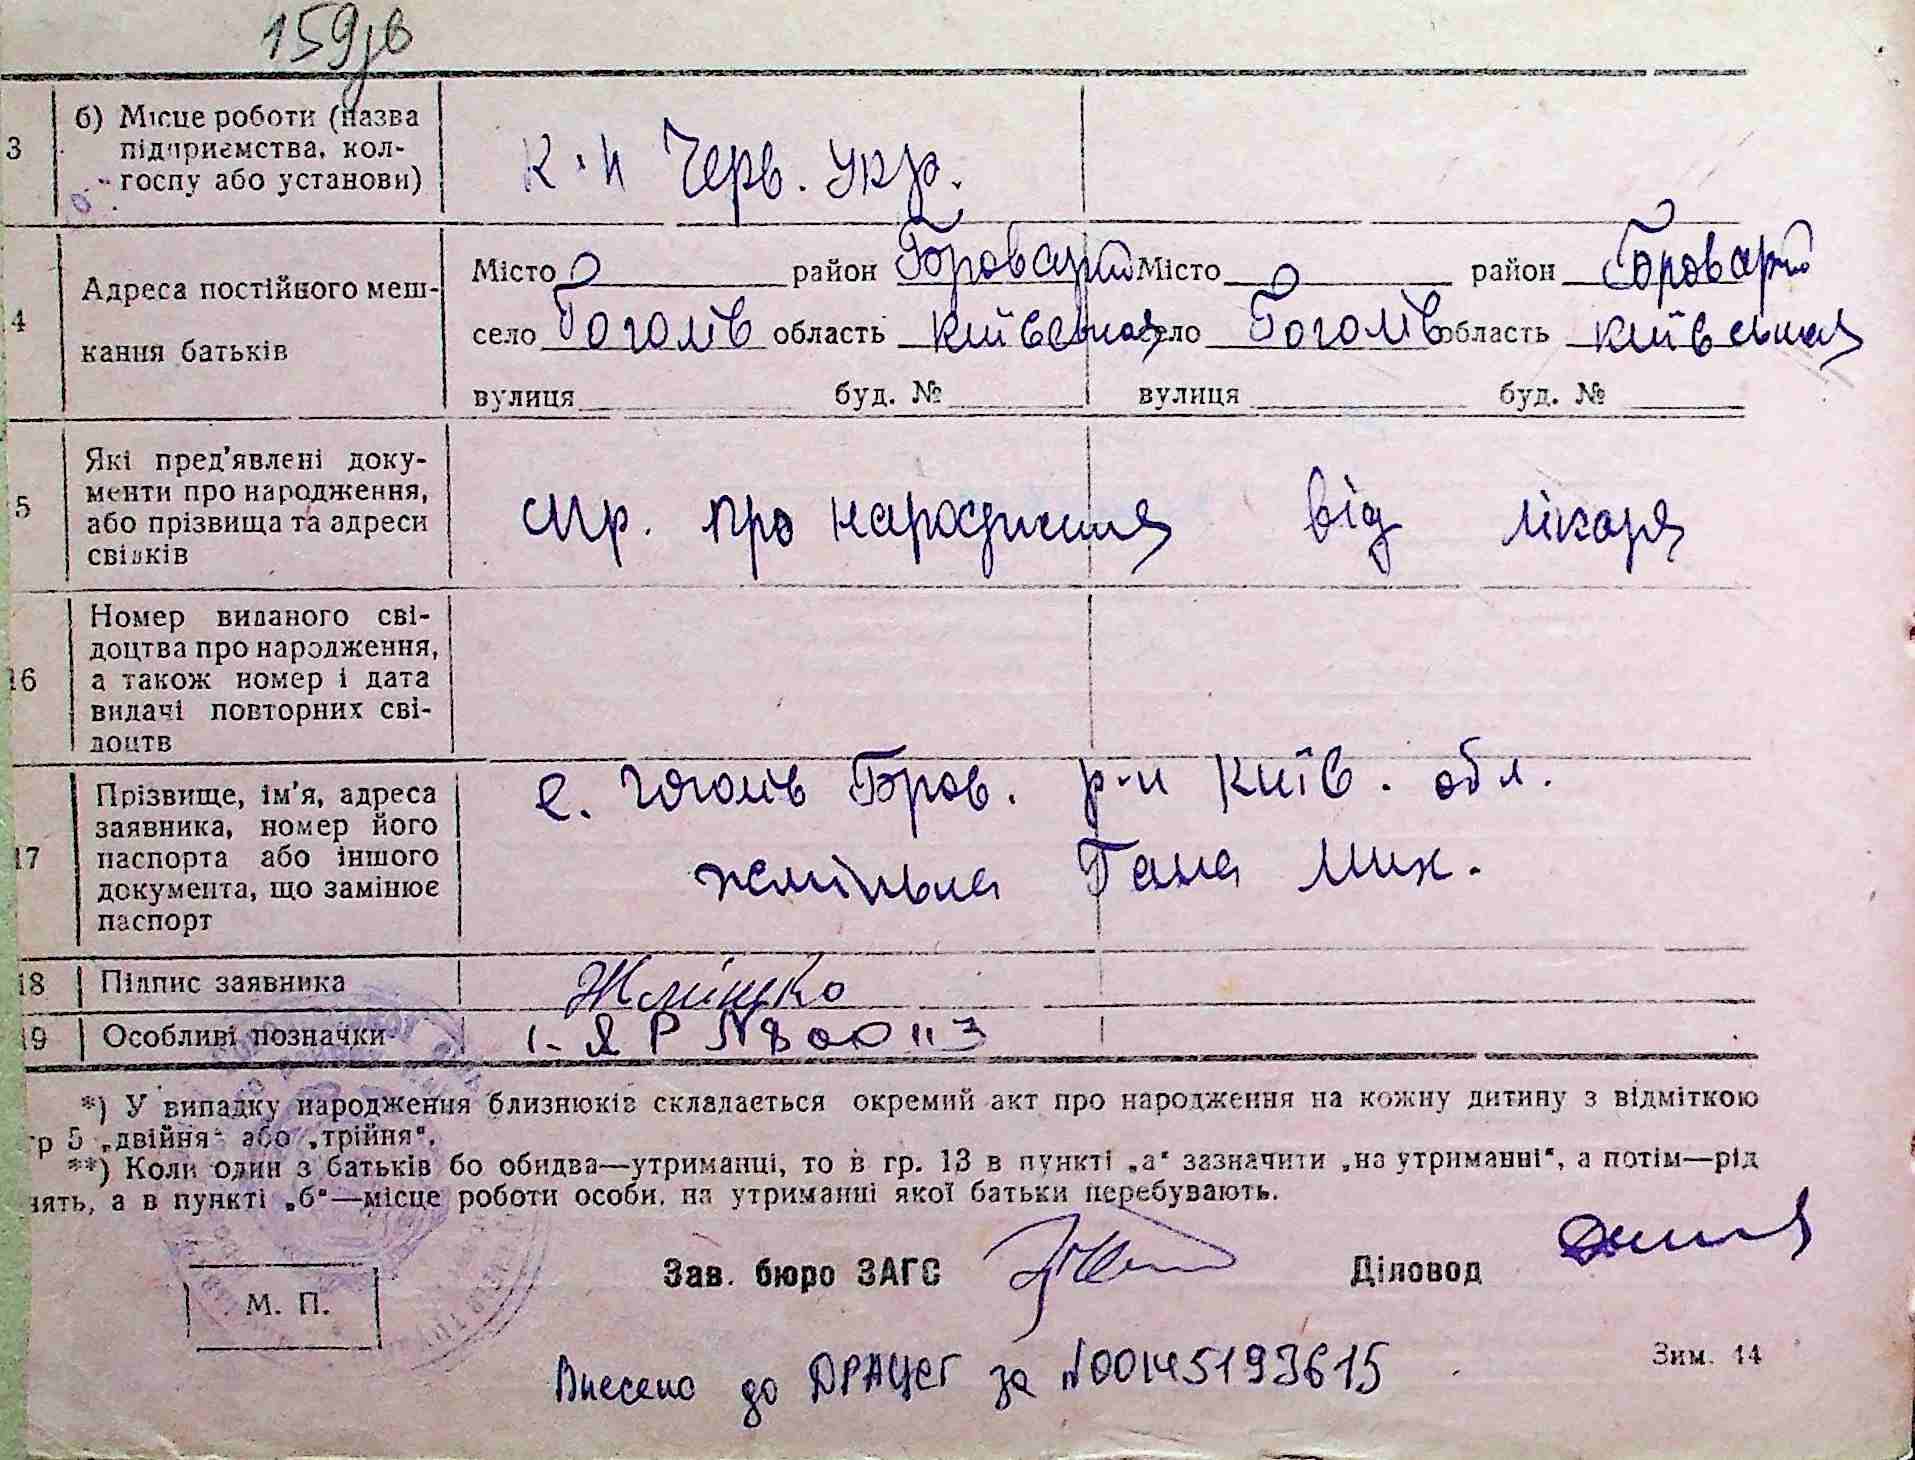 159зв
3 б) Місце роботи (назва підприємства, колгоспу або установи) к-п Черв. Укр.
4 Адреса постійного мешкання батьків
Місто район Бровари Місто район Бровари
село Гоголів область Київська село Гоголів область Київська
вулиця буд. № вулиця буд. №
5 Які пред'явлені документи про народження, або прізвища та адреси свідків
спр. про народження від лікаря
16 Номер виданого свідоцтва про народження, а також номер і дата видачі повторних свідоцтв
17 Прізвище, ім'я, адреса заявника, номер його паспорта або іншого документа, що замінює паспорт
с. Гоголів Бров. р-н Київ. обл.
Ганна Мих.
18 Підпис заявника
19 Особливі позначки I-ЯР № 800113
*) У випадку народження близнюків складається окремий акт про народження на кожну дитину з відміткою
гр 5 „двійня“ або „трійня“.
**) Коли один з батьків бо обидва—утриманці, то в гр. 13 в пункті „а“ зазначити „на утриманні“, а потім—рід
нять, а в пункті „б“—місце роботи особи, на утриманні якої батьки перебувають.
Зав. бюро ЗАГС Діловод
М. П.
Зим. 14
Внесено до ДРАЦСГ за №00145193615